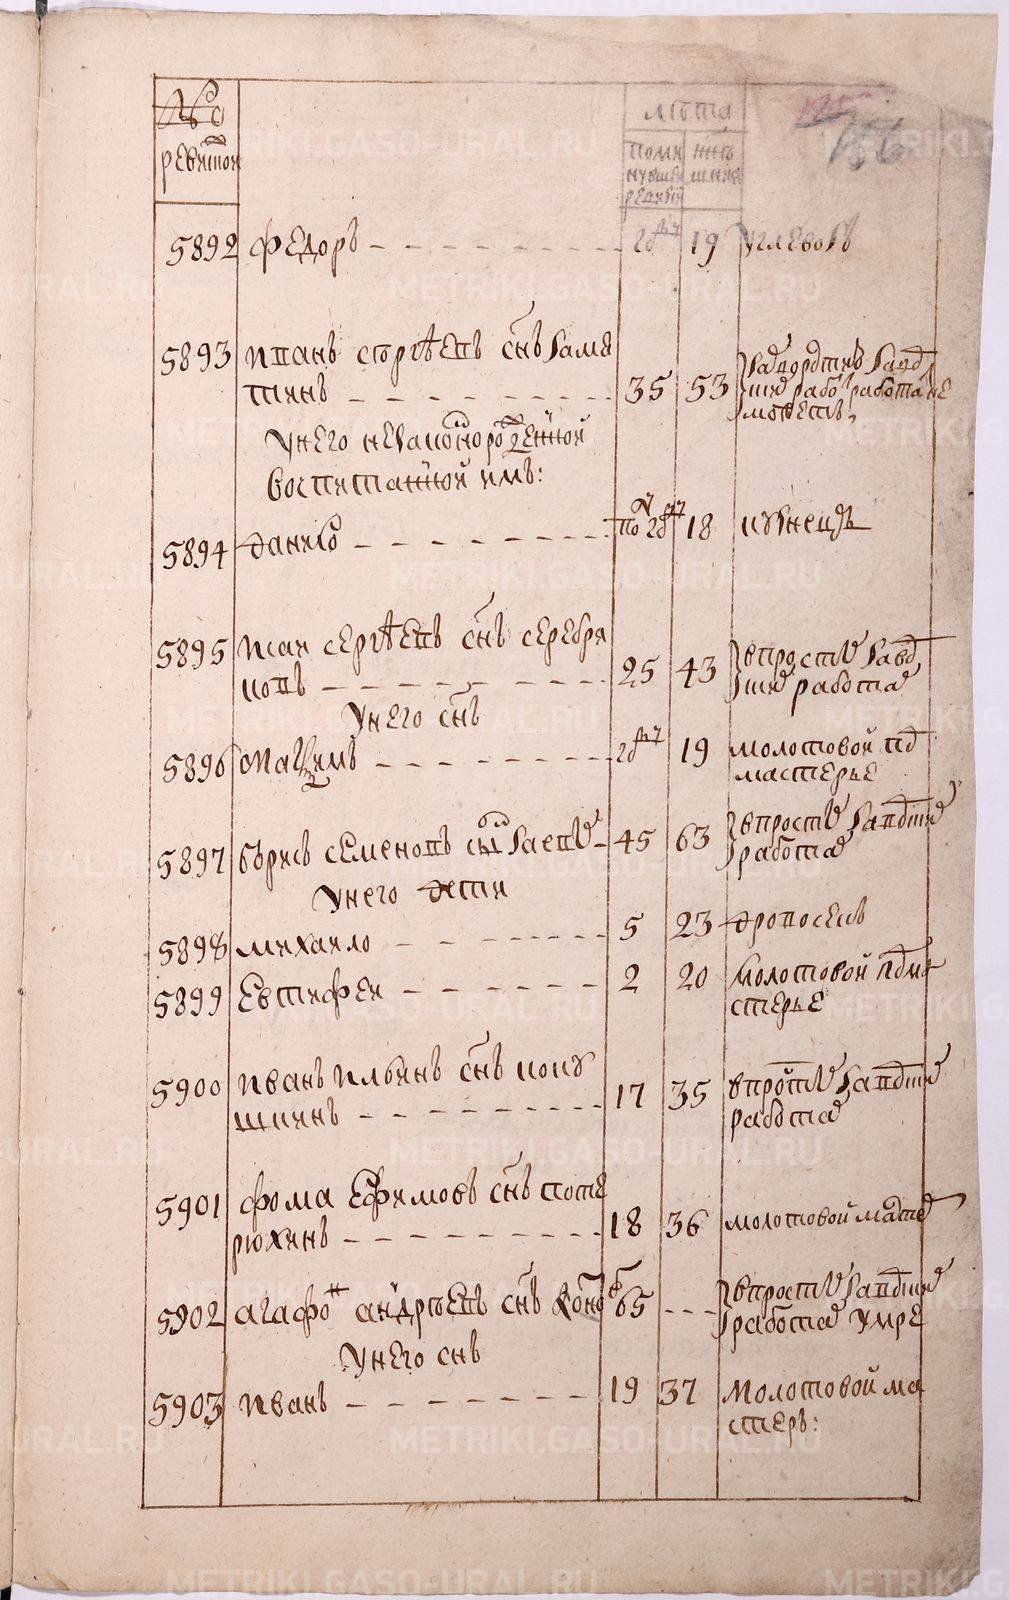 №о
ревизои
лѣта
поми
нувшеи
ревизїи
нын
шние
125
156
5892 Федоръ 2 год 19 углевозъ
5893 Иванъ Сергѣевъ сн̃ъ Камя
тинъ 35 53
работа не
можетъ
У него незаконорожденной
воспитанной имъ:
5894 Данило по 2 год 18 кузнецъ
5895 Исай Сергѣевъ сн̃ъ Серебря
ковъ 25 43 в просте завод
ше работа
У него сн̃ъ
5896 Максимъ 2 год 19 молотовой под
мастерье
5897 Борисъ Семеновъ сынъ 45 63 в просте заводше
работа
У него дети
5898 Михаило 5 23 дровосекъ
5899 Евтифеи 2 20 Молотовой подма
стерье
5900 Иванъ Ильинъ сн̃ъ Коку
шкинъ 17 35 в просте заводше
работа
5901 Фома Ефимовъ сн̃ъ Поте
рюхинъ 18 36 молотовой мастер
5902 Агафон Андрѣевъ сн̃ъ 65 в просте заводше
работа умре
У него сн̃ъ
5903 Иванъ 19 37 Молотовой ма
стеръ:
METRIKI.GASO-URAL.RU